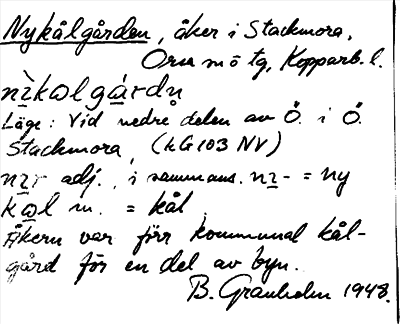 Nykålgården, åker i Stackmora,
Orsa m ö tg, Kopparb. l.
nìkωlgárdn̥
Läge: Vid nedre delen av Ö. i Ö.
Stackmora, (kG103 NV)
nɪr adj., i sammans. nɪ- = ny
kωl m. = kål
Åkern var förr kommunal kål-
gård för en del av byn.
B. Granholm 1948.